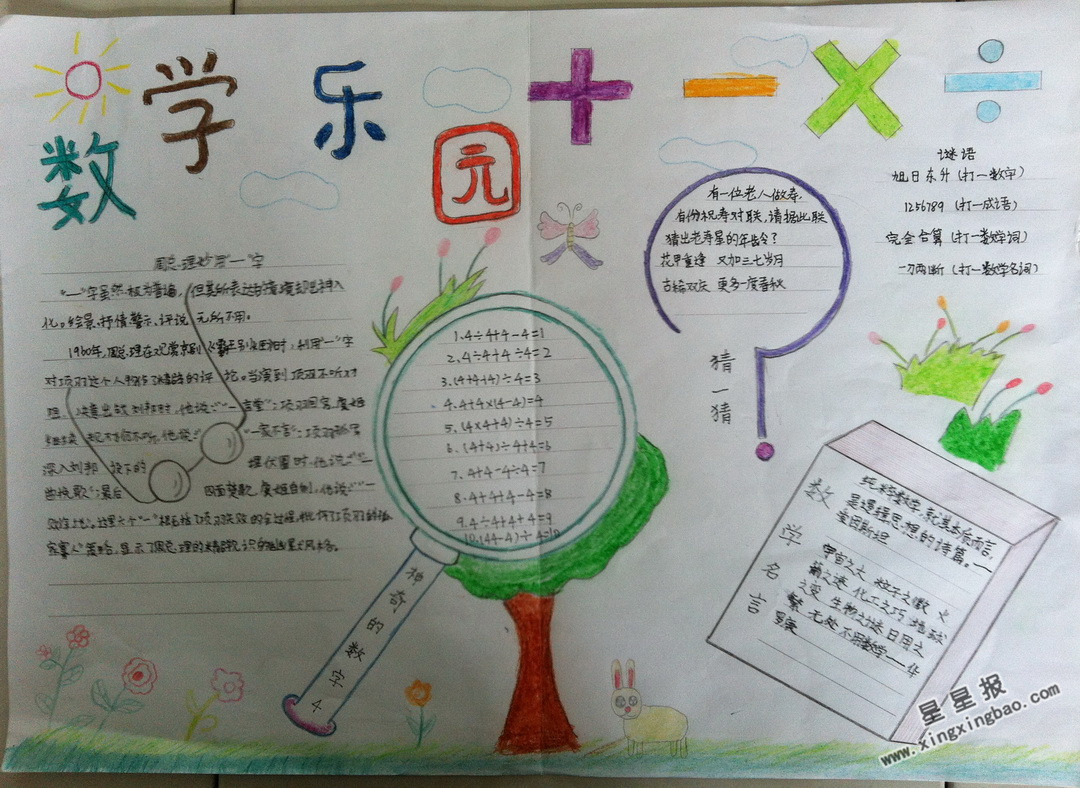 数学乐园
+ − × ÷
周总理妙用"一"字
"一"字虽然极为普遍,但其所表达的情境却已神入
化。绘景、抒情、警示、评说,无所不用。
1960年,周总理在观赏京剧《霸王别姬》时,利用"一"字
对项羽这个人物作了精路的评论。当演到项羽不听对
决意出欲刘邦时,他说:"一言堂";项羽回宫,虞姬
他说:"一家不言";
深入刘邦设下的埋伏圈时,他说:"一
曲挽歌";最后四面楚歌,虞姬自刎,他说:"一
败涂地"。这里六个"一"概括了项羽失败的全过程,批评了项羽的
1.4÷4+4-4=1
2.4÷4+4÷4=2
3.(4+4+4)÷4=3
4.4+4×(4-4)=4
5.(4×4+4)÷4=5
6.(4+4)÷4+4=6
7.4+4-4÷4=7
8.4+4+4-4=8
9.4÷4+4+4=9
10.(44-4)÷4=10
神奇的数字4
有一位老人做寿,
有份祝寿对联,请据此联
猜出老寿星的年龄?
花甲重逢 又加三七岁月
古稀双庆 更多一度春秋
猜一猜
谜语
旭日东升(打一数字)
1256789(打一成语)
完全合算(打一数学词)
一刀两断(打一数学名词)
数学名言
纯粹数学,就其本质而言,
是逻辑思想的诗篇。—
爱因斯坦
宇宙之大 粒子之微 火
箭之速 化工之巧 地球
之变 生物之谜 日用之
繁 无处不用数学——华
罗庚
星星报
www.xingxingbao.com